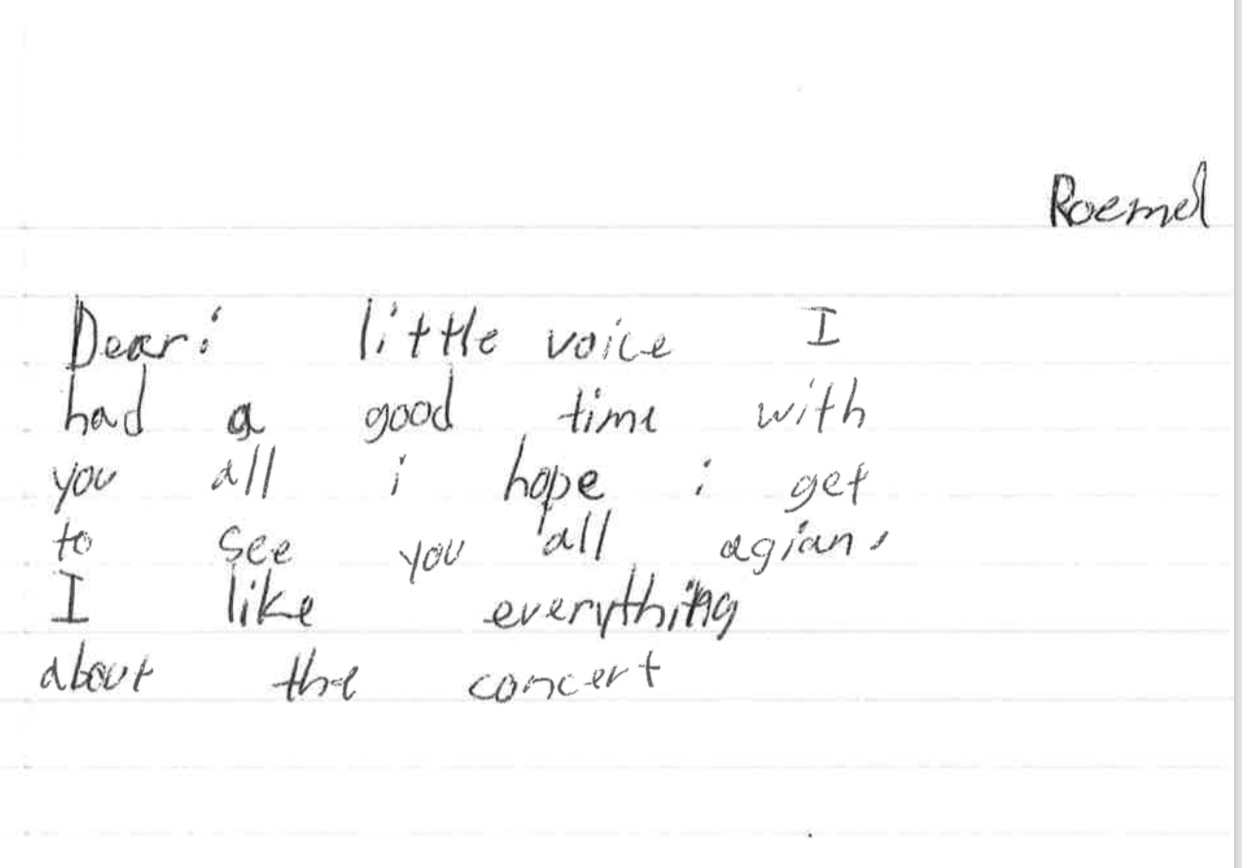 Roemel
Dear: little voice I
had a good time with
you all i hope i get
to see you all agian,
I like everything
about the concert